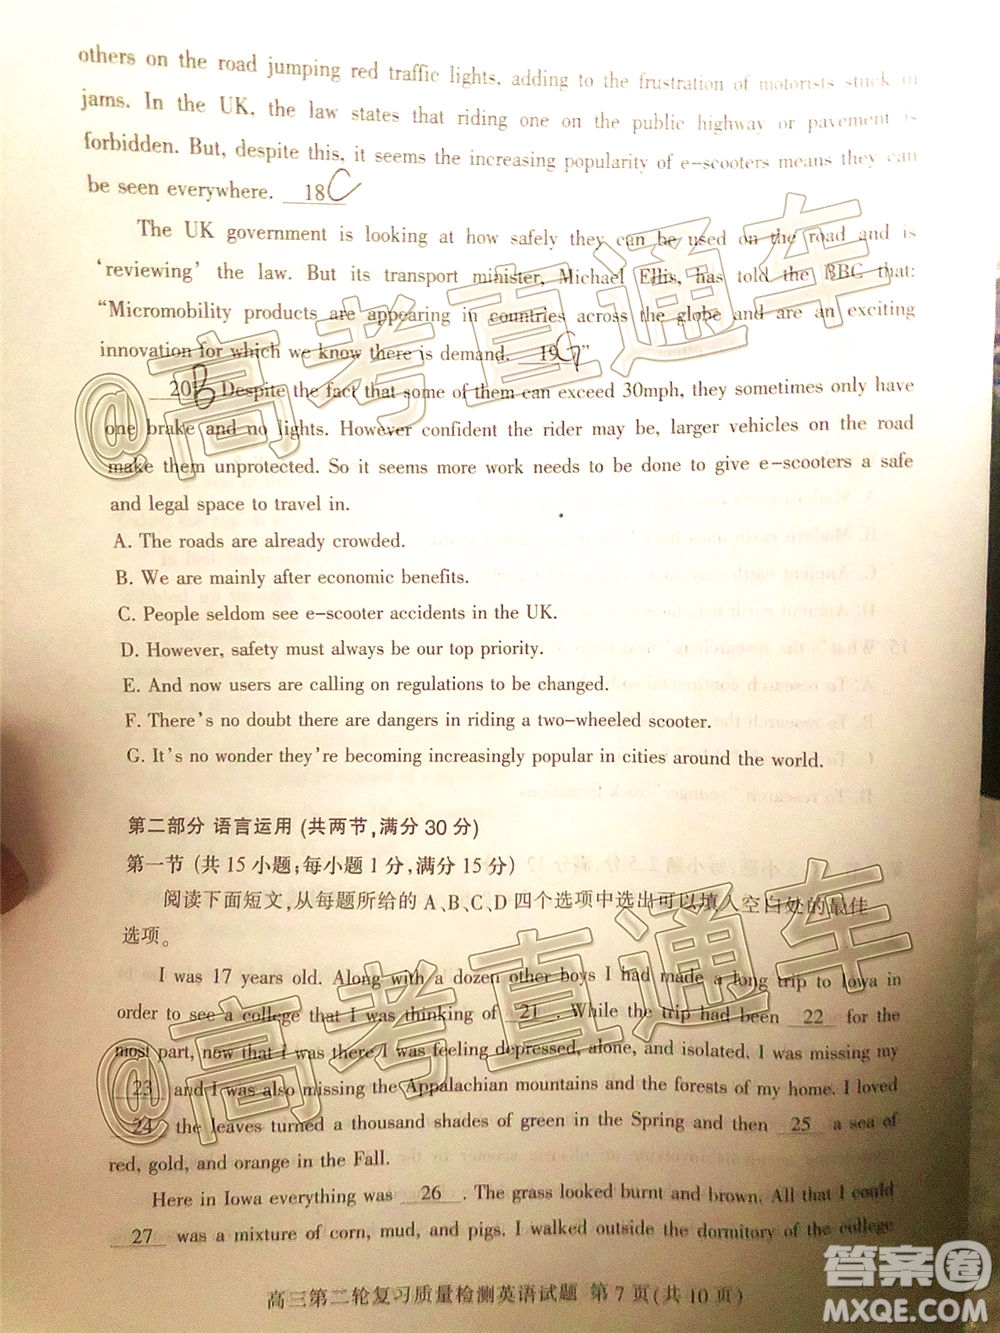 others on the road jumping red traffic lights, adding to the frustration of motorists stuck in
jams. In the UK, the law states that riding one on the public highway or pavement is
forbidden. But, despite this, it seems the increasing popularity of e-scooters means they can
be seen everywhere. 18 C
The UK government is looking at how safely they can be used on the road and is
‘reviewing’ the law. But its transport minister, Michael Ellis, has told the BBC that:
“Micromobility products are appearing in countries across the globe and are an exciting
innovation for which we know there is demand. 19 G”
20 B Despite the fact that some of them can exceed 30mph, they sometimes only have
one brake and no lights. However confident the rider may be, larger vehicles on the road
make them unprotected. So it seems more work needs to be done to give e-scooters a safe
and legal space to travel in.
A. The roads are already crowded.
B. We are mainly after economic benefits.
C. People seldom see e-scooter accidents in the UK.
D. However, safety must always be our top priority.
E. And now users are calling on regulations to be changed.
F. There's no doubt there are dangers in riding a two-wheeled scooter.
G. It's no wonder they're becoming increasingly popular in cities around the world.
第二部分 语言运用 (共两节,满分 30 分)
第一节 (共 15 小题;每小题 1 分,满分 15 分)
阅读下面短文,从每题所给的 A、B、C、D 四个选项中选出可以填入空白处的最佳
选项。
I was 17 years old. Along with a dozen other boys I had made a long trip to Iowa in
order to see a college that I was thinking of 21 . While the trip had been 22 for the
most part, now that I was there I was feeling depressed, alone, and isolated. I was missing my
23 and I was also missing the Appalachian mountains and the forests of my home. I loved
24 the leaves turned a thousand shades of green in the Spring and then 25 a sea of
red, gold, and orange in the Fall.
Here in Iowa everything was 26 . The grass looked burnt and brown. All that I could
27 was a mixture of corn, mud, and pigs. I walked outside the dormitory of the college
高三第二轮复习质量检测英语试题 第 7 页(共 10 页)
@高考直通车
@高考直通车
答案圈
MXQE.COM